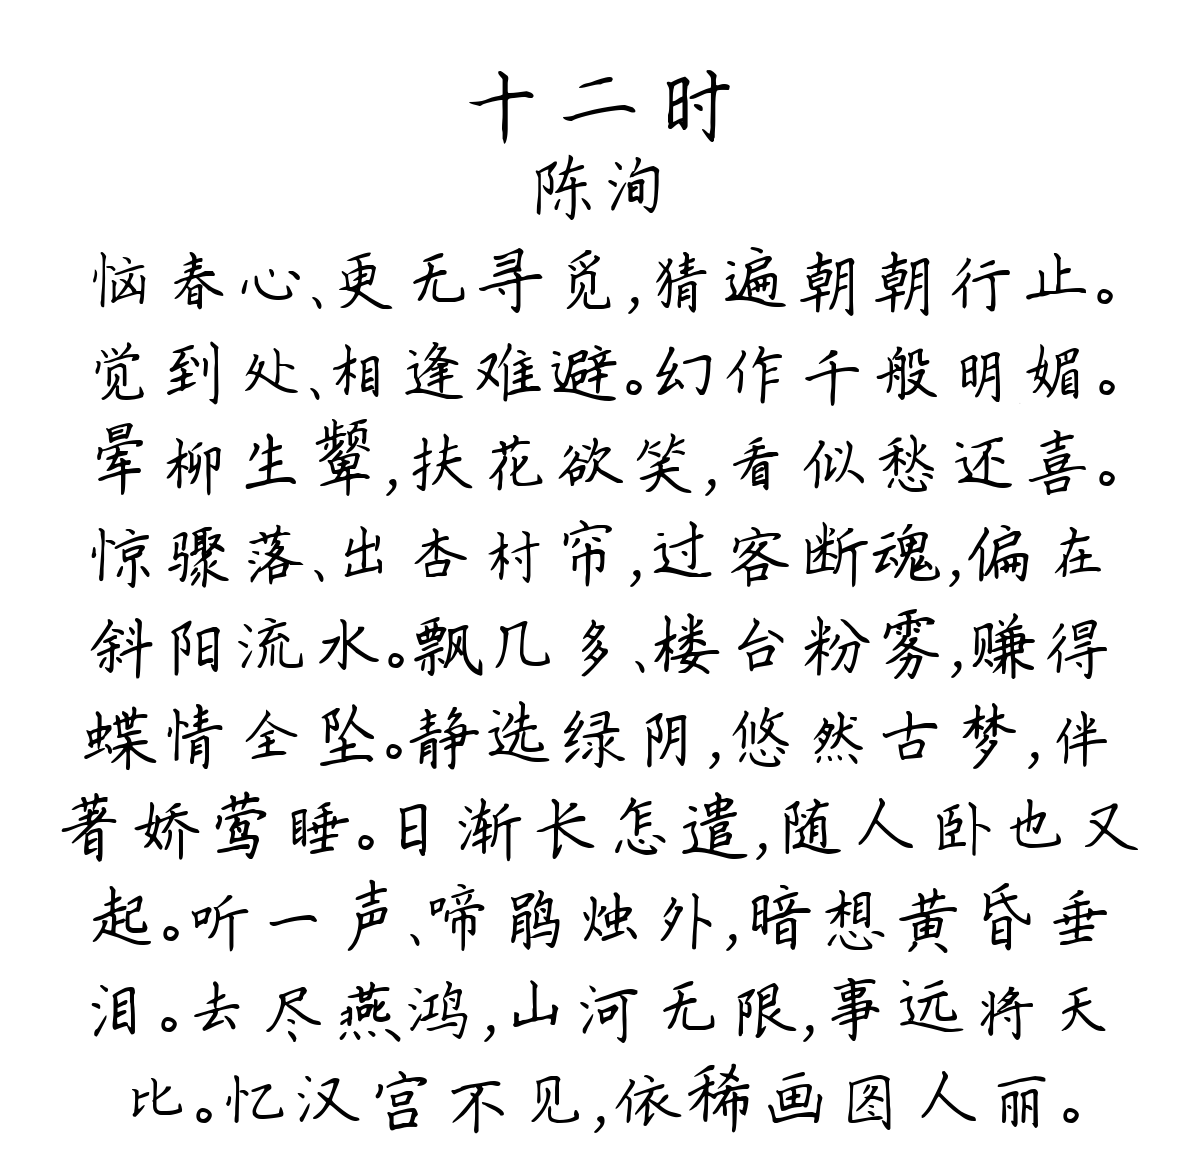 十二时
陈洵
恼春心、更无寻觅,猜遍朝朝行止。
觉到处、相逢难避。幻作千般明媚。
晕柳生颦,扶花欲笑,看似愁还喜。
惊骤落、出杏村帘,过客断魂,偏在
斜阳流水。飘几多、楼台粉雾,赚得
蝶情全坠。静选绿阴,悠然古梦,伴
著娇莺睡。日渐长怎遣,随人卧也又
起。听一声、啼鹃烛外,暗想黄昏垂
泪。去尽燕鸿,山河无限,事远将天
比。忆汉宫不见,依稀画图人丽。